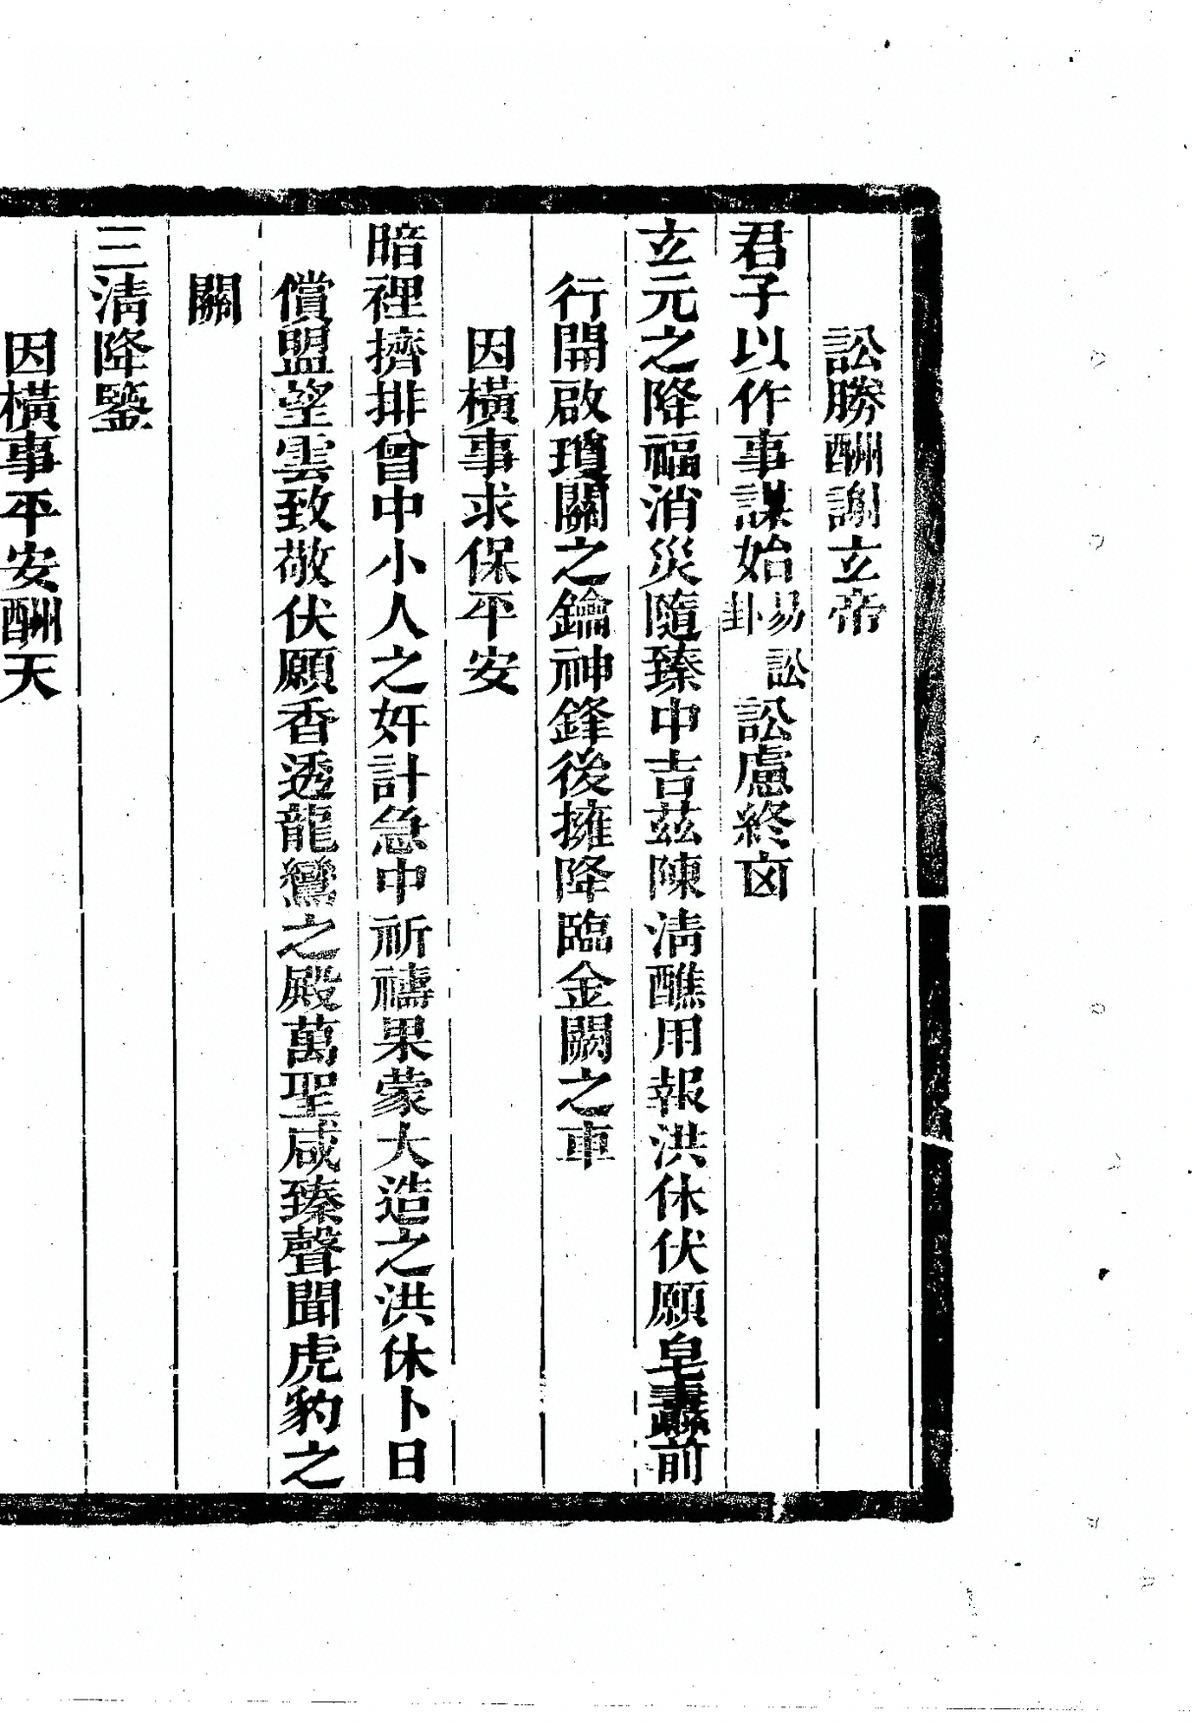 訟勝酬謝玄帝
君子以作事謀始易訟卦訟慮終凶
玄元之降福消災隨臻中吉茲陳淸醮用報洪休伏願皂纛前
行開啟瓊關之鑰神鋒後擁降臨金闕之車
因橫事求保平安
暗裡擠排曾中小人之奸計急中祈禱果蒙大造之洪休卜日
償盟望雲致敬伏願香透龍鸞之殿萬聖咸臻聲聞虎豹之
關
三淸降鑒
因橫事平安酬天